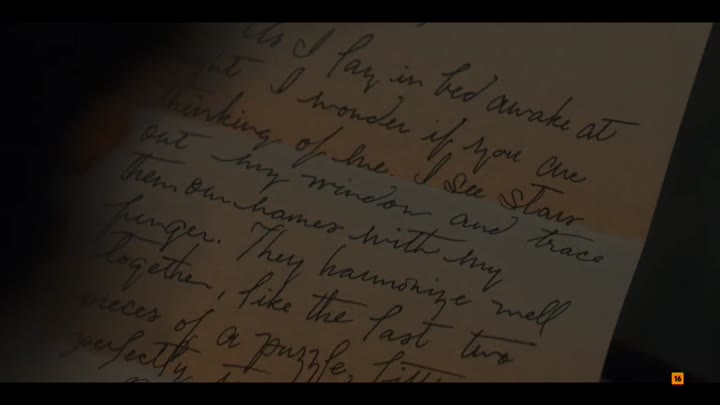 As I lay in bed awake at
I wonder if you are
thinking of me. I see stars
out my window and trace
them our names with my
finger. They harmonize well
together, like the last two
pieces of a puzzle,
perfectly
16